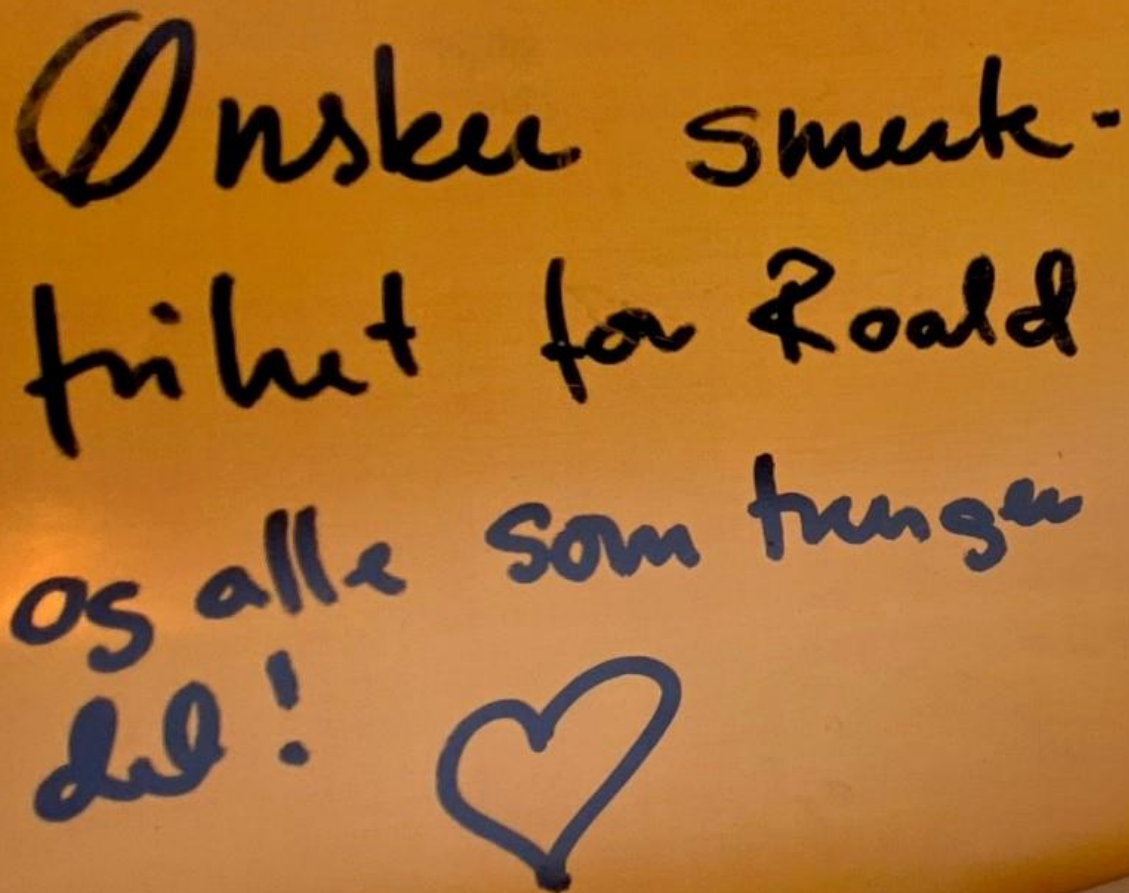 Ønsker smerte-
frihet for Roald
og alle som trenger
det!